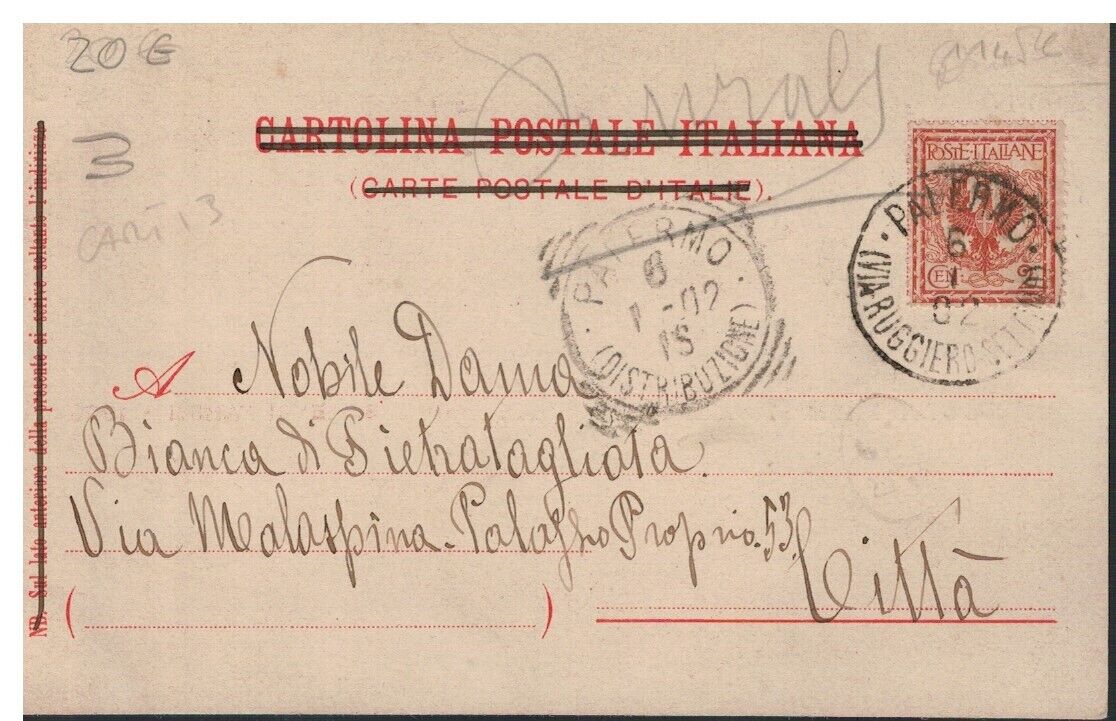 20 €
3
CART 13
CARTOLINA POSTALE ITALIANA
(CARTE POSTALE D'ITALIE).
POSTE·ITALIANE
CENT 2
PALERMO
6
1
02
(VIA RUGGIERO SETTIMO)
PALERMO
6
1-02
1S
(DISTRIBUZIONE)
A Nobile Dama
Bianca di Pietratagliata
Via Malaspina - Palazzo Proprio. 53.
Città
NB. Sul lato anteriore della presente si scrive soltanto l'indirizzo